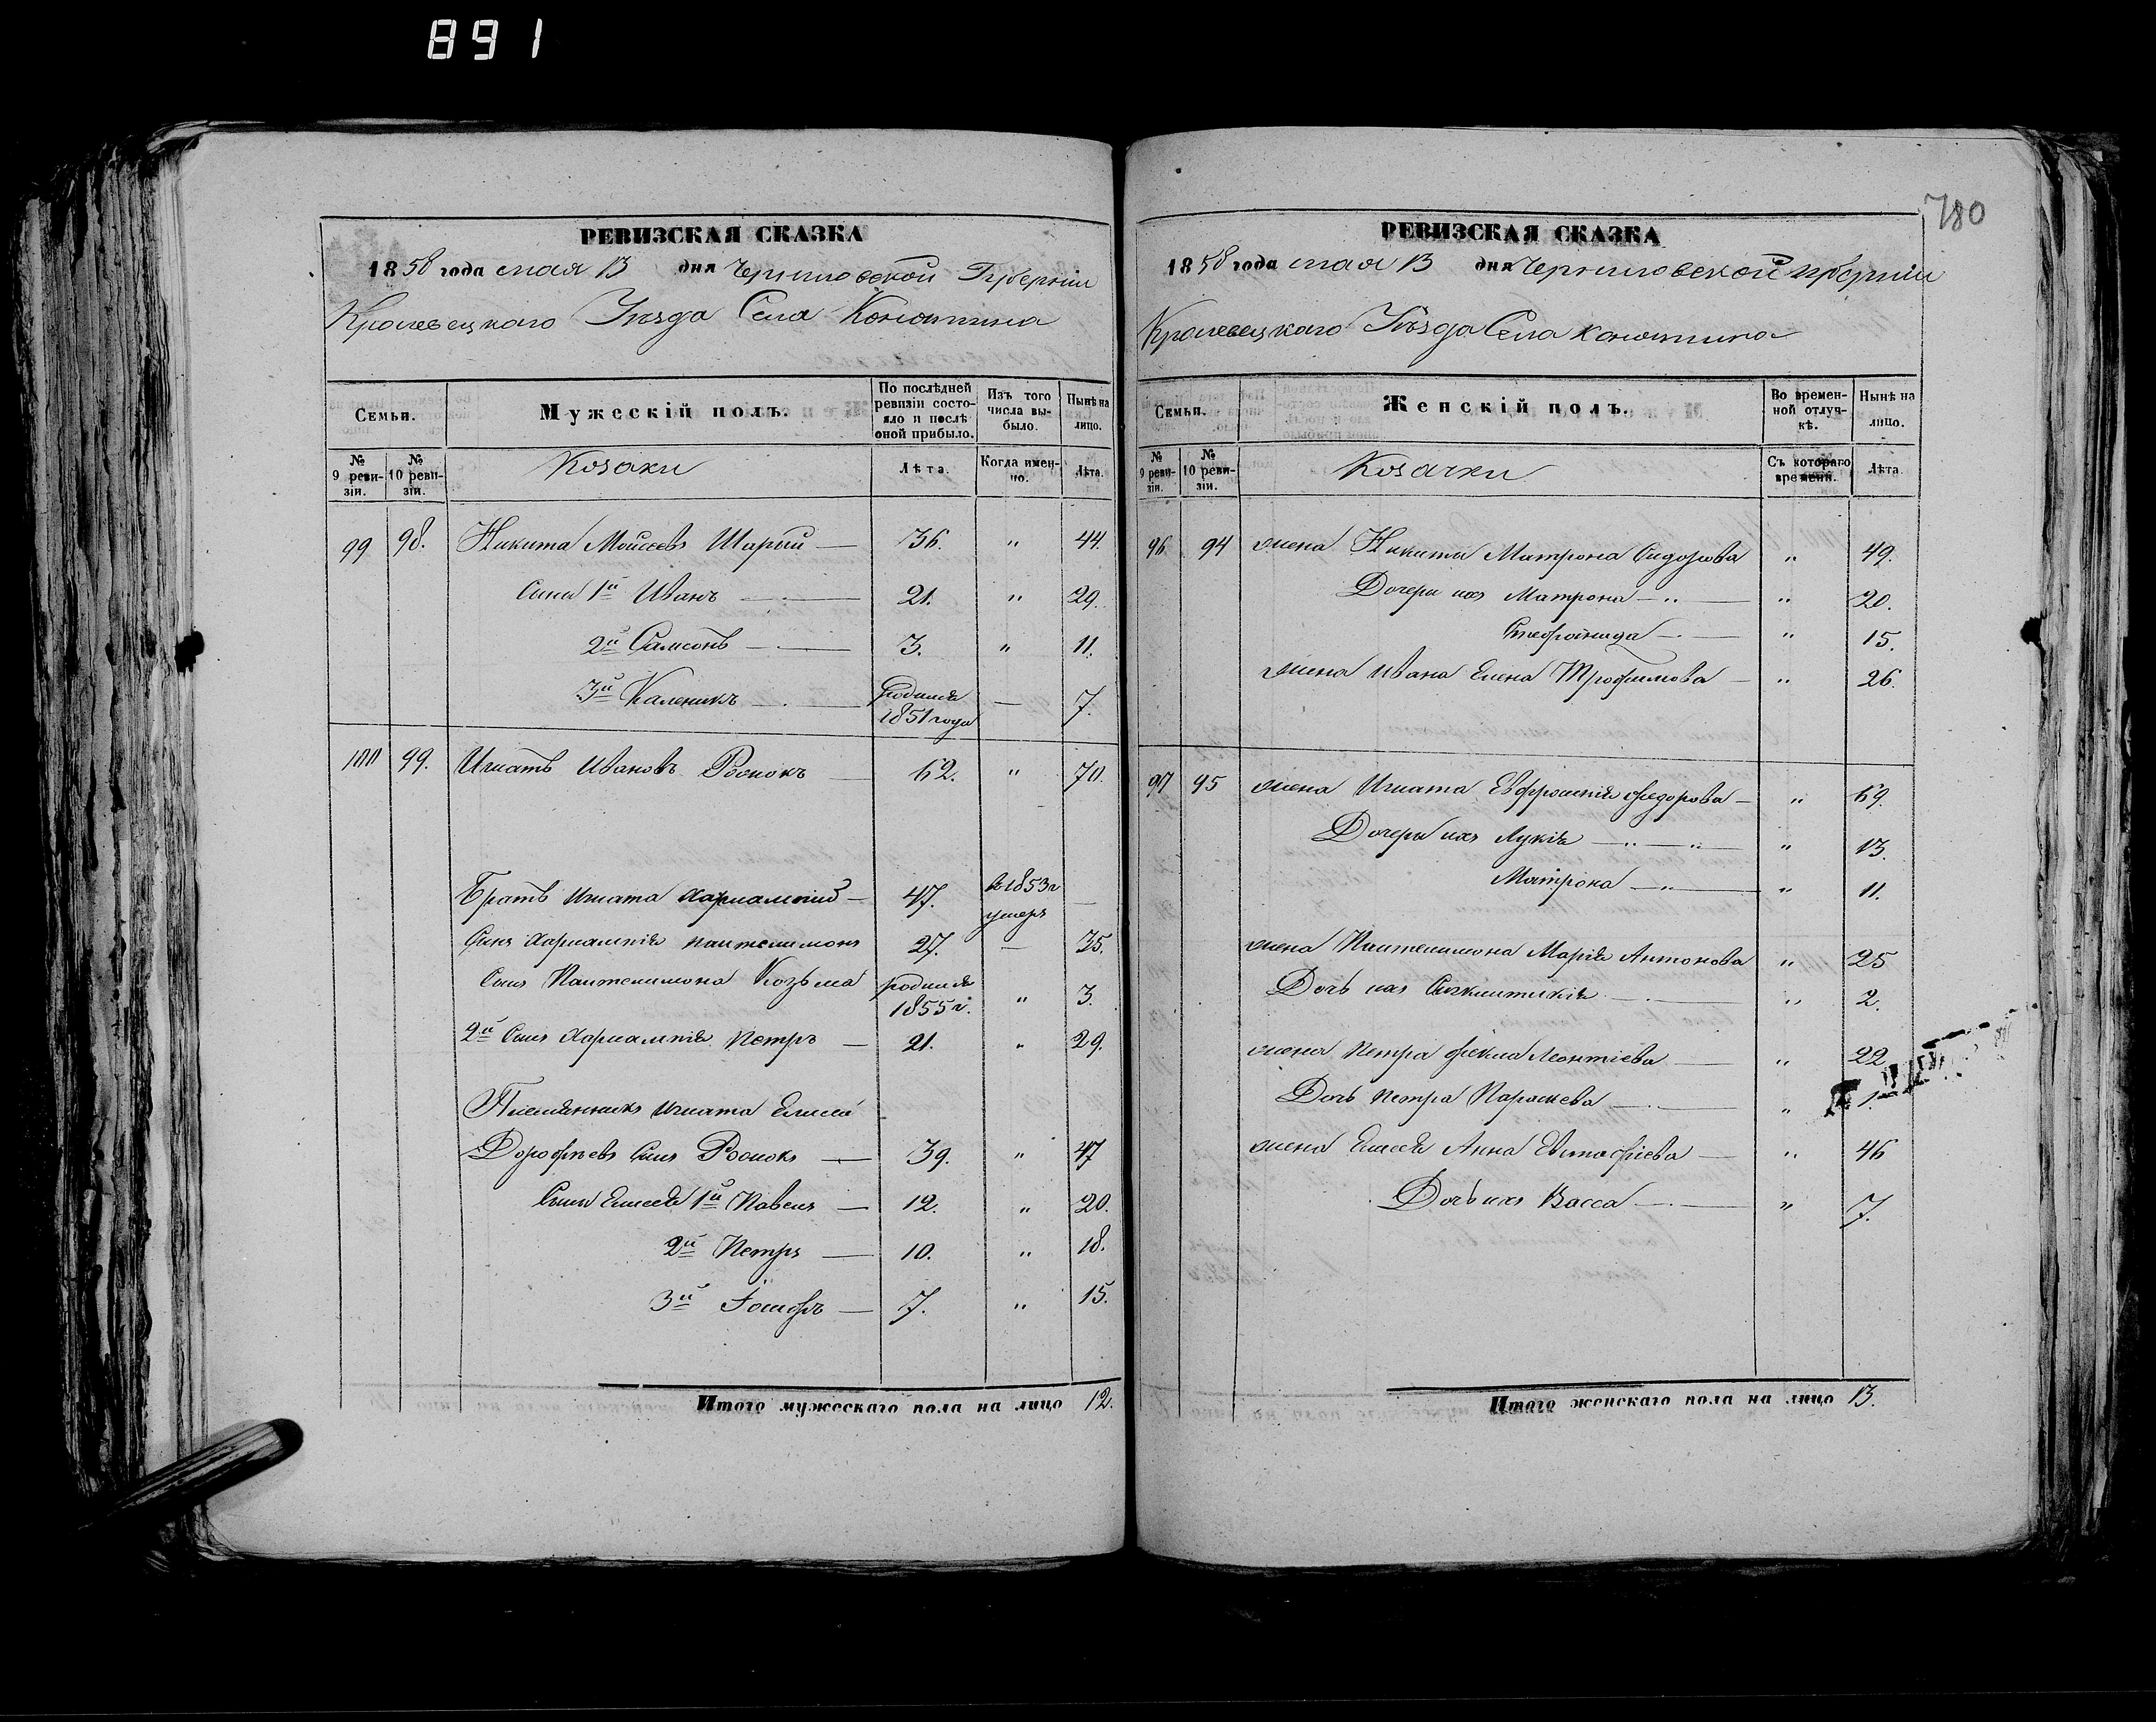 891
780
РЕВИЗСКАЯ СКАЗКА
1858 года мая 13 дня Черниговской Губерніи
Кролевецкаго Уѣзда Села Конотипа
Семьи. Мужескій полъ. По послѣдней ревизіи состояло и послѣ оной прибыло. Изъ того числа выбыло. Нынѣ на лицо.
№ 9 ревизіи. № 10 ревизіи. Козаки Лѣта. Когда именно. Лѣта.
99 98. Никита Мойсеевъ Шарый — 36. " 44.
Сини 1й Иванъ — 21. " 29.
2й Самсонъ — 3. " 11.
3й Каленикъ — родился 1851 года — 7.
100 99. Игнатъ Ивановъ — 62. " 70.
Братъ Игната Харлампій — 47. в 1853 г умеръ —
Синъ Харлампія Пантелимонъ 27. — 35.
Синъ Пантелимона Козьма родился 1855 г. " 3.
2й Синъ Харлампія Петръ — 21. " 29.
Племянникъ Игната Елисей
Дорофѣевъ Синъ — 39. " 47
Сыны Елисея 1й Павелъ — 12. " 20.
2й Петръ — 10. " 18.
3й Іосифъ — 7. " 15.
Итого мужескаго пола на лицо 12.
РЕВИЗСКАЯ СКАЗКА
1858 года мая 13 дня Черниговской губерніи
Кролевецкаго Уѣзда Села
Семьи. Женскій полъ. Во временной отлучкѣ. Нынѣ на лицо.
№ 9 ревизіи. № 10 ревизіи. Козачки Съ котораго времени. Лѣта.
96 94 жена Никити Матрона Сидорова " 49.
Дочери ихъ Матрона — " 20.
— " 15.
жена Ивана Елена Трофимова — " 26.
97 95 жена Игната Евфросинія Федорова — " 69.
Дочери ихъ Лукія — " 13.
Матрона — " 11.
жена Пантелимона Марія Антонова " 25
Дочь ихъ Синклитикія — " 2.
жена Петра Фекла Леонтіева — " 22
Дочь Петра Параскева — " 1.
жена Елисея Анна Евстафіева — " 46
Дочь ихъ Васса — " 7.
Итого женскаго пола на лицо 13.